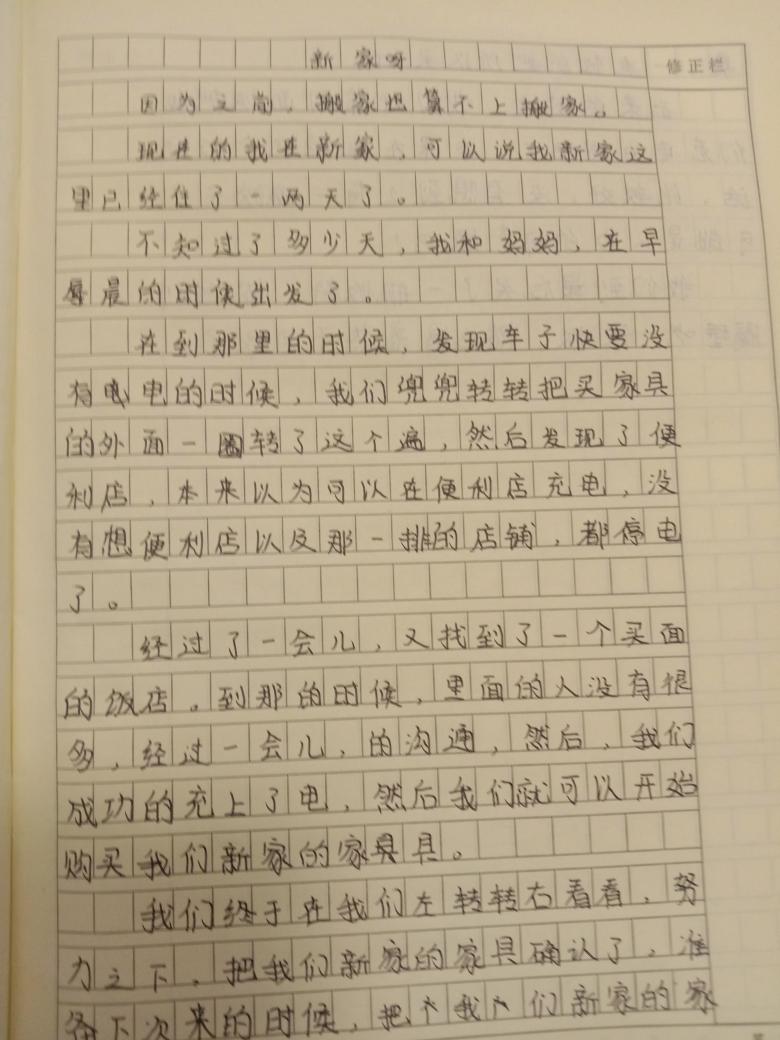 新家呀
修正栏
因为之前，搬家也算不上搬家。
现在的我在新家，可以说我新家这
里已经住了一两天了。
不知过了多少天，我和妈妈，在早
晨的时候出发了。
在到那里的时候，发现车子快要没
有电的时候，我们兜兜转转把买家具
的外面一圈转了这个遍，然后发现了便
利店，本来以为可以在便利店充电，没
有想便利店以及那一排的店铺，都停电
了。
经过了一会儿，又找到了一个买面
的饭店。到那的时候，里面的人没有很
多，经过一会儿，的沟通，然后，我们
成功的充上了电，然后我们就可以开始
购买我们新家的家具。
我们终于在我们左转转右看看，努
力之下，把我们新家的家具确认了，准
备下次来的时候，把我们新家的家